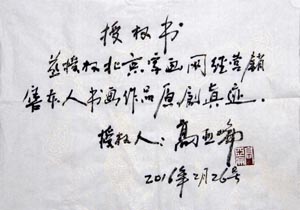 授权书
兹授权北京字画网经营销
售本人书画作品原创真迹.
授权人:高亚峰
2016年2月26号